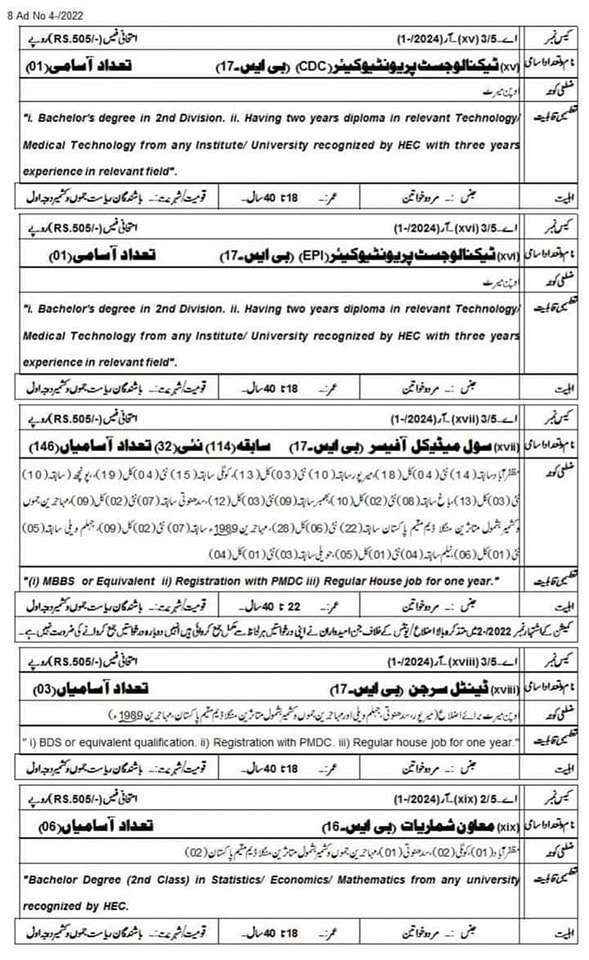 8 Ad No 4-/2022
کیس نمبر اے۔3/5 (xv)۔آر(2024/-1) امتحانی فیس(RS.505/-)روپے
نام و تعداد اسامی (xv) ٹیکنالوجسٹ پریونٹیو کیئر (CDC) (بی ایس۔17) تعداد آسامی (01)
ضلعی کوٹہ اوپن میرٹ
تعلیمی قابلیت "i. Bachelor's degree in 2nd Division. ii. Having two years diploma in relevant Technology/
Medical Technology from any Institute/ University recognized by HEC with three years
experience in relevant field".
اہلیت جنس :۔ مرد و خواتین عمر:۔ 18 تا 40 سال۔ قومیت/شہریت:۔ باشندگان ریاست جموں و کشمیر درجہ اول
کیس نمبر اے۔3/5 (xvi)۔آر(2024/-1) امتحانی فیس(RS.505/-)روپے
نام و تعداد اسامی (xvi) ٹیکنالوجسٹ پریونٹیو کیئر (EPI) (بی ایس۔17) تعداد آسامی (01)
ضلعی کوٹہ اوپن میرٹ
تعلیمی قابلیت "i. Bachelor's degree in 2nd Division. ii. Having two years diploma in relevant Technology/
Medical Technology from any Institute/ University recognized by HEC with three years
experience in relevant field".
اہلیت جنس :۔ مرد و خواتین عمر:۔ 18 تا 40 سال۔ قومیت/شہریت:۔ باشندگان ریاست جموں و کشمیر درجہ اول
کیس نمبر اے۔3/5 (xvii)۔آر(2024/-1) امتحانی فیس(RS.505/-)روپے
نام و تعداد اسامی (xvii) سول میڈیکل آفیسر (بی ایس۔17) سابقہ (114) نئی (32) تعداد آسامیاں (146)
ضلعی کوٹہ مظفرآباد سابقہ (14) نئی (04) کل (18)، میرپور سابقہ (10) نئی (03) کل (13)، کوٹلی سابقہ (15) نئی (04) کل (19)، پونچھ (سابقہ (10)
نئی (03) کل (13)، باغ سابقہ (08) نئی (02) کل (10)، بھمبر سابقہ (09) نئی (03) کل (12)، سدھنوتی سابقہ (07) نئی (02) کل (09)، مہاجرین جموں
و کشمیر بشمول متاثرین منگلا ڈیم مقیم پاکستان سابقہ (22) نئی (06) کل (28)، مہاجرین 1989ء سابقہ (07) نئی (02) کل (09)، جہلم ویلی سابقہ (05)
نئی (01) کل (06)، نیلم سابقہ (04) نئی (01) کل (05)، حویلی سابقہ (03) نئی (01) کل (04)
تعلیمی قابلیت "(i) MBBS or Equivalent ii) Registration with PMDC iii) Regular House job for one year."
اہلیت جنس :۔ مرد و خواتین عمر:۔ 22 تا 40 سال۔ قومیت/شہریت:۔ باشندگان ریاست جموں و کشمیر درجہ اول
کمیشن کے اشتہار نمبر 2022/-2 میں متذکرہ بالا اضلاع/یونٹس کے خلاف جن امیدواران نے اپنی درخواستیں ہر لحاظ سے مکمل جمع کروائی ہیں انہیں دوبارہ درخواستیں جمع کروانے کی ضرورت نہیں ہے۔
کیس نمبر اے۔3/5 (xviii)۔آر(2024/-1) امتحانی فیس(RS.505/-)روپے
نام و تعداد اسامی (xviii) ڈینٹل سرجن (بی ایس۔17) تعداد آسامیاں (03)
ضلعی کوٹہ اوپن میرٹ برائے اضلاع (میرپور، سدھنوتی، جہلم ویلی اور مہاجرین جموں و کشمیر بشمول متاثرین منگلا ڈیم مقیم پاکستان، مہاجرین 1989ء)
تعلیمی قابلیت " i) BDS or equivalent qualification. ii) Registration with PMDC. iii) Regular house job for one year."
اہلیت جنس :۔ مرد و خواتین عمر:۔ 18 تا 40 سال۔ قومیت/شہریت:۔ باشندگان ریاست جموں و کشمیر درجہ اول
کیس نمبر اے۔2/5 (xix)۔آر(2024/-1) امتحانی فیس(RS.505/-)روپے
نام و تعداد اسامی (xix) معاون شماریات (بی ایس۔16) تعداد آسامیاں (06)
ضلعی کوٹہ مظفرآباد (01)، کوٹلی (02)، سدھنوتی (01)، مہاجرین جموں و کشمیر بشمول متاثرین منگلا ڈیم مقیم پاکستان (02)
تعلیمی قابلیت "Bachelor Degree (2nd Class) in Statistics/ Economics/ Mathematics from any university
recognized by HEC.
اہلیت جنس :۔ مرد و خواتین عمر:۔ 18 تا 40 سال۔ قومیت/شہریت:۔ باشندگان ریاست جموں و کشمیر درجہ اول